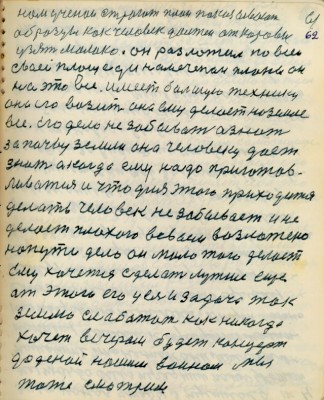 нам ученои строит план показывает
образуи как человек дается от коровы
узят молако. он разложил по всеи
своеи площеди намеченои план он
на это все. имеет большую технику
она его возит она ему делает
все. его дело не забыват а знат
за почву земли она человеку дает
знат а когда ему надо приготов-
ливатся и что для этого приходится
делать человек не забывает и не
делает плохого во всем возложено
на пути дело он мало того делает
ему хочется сделат лутше еще
от этого его цел и задача так
земло слабатат как никогда
хочет вечером будет концерт
до денои нашим воином мы
тоже смотрим
62